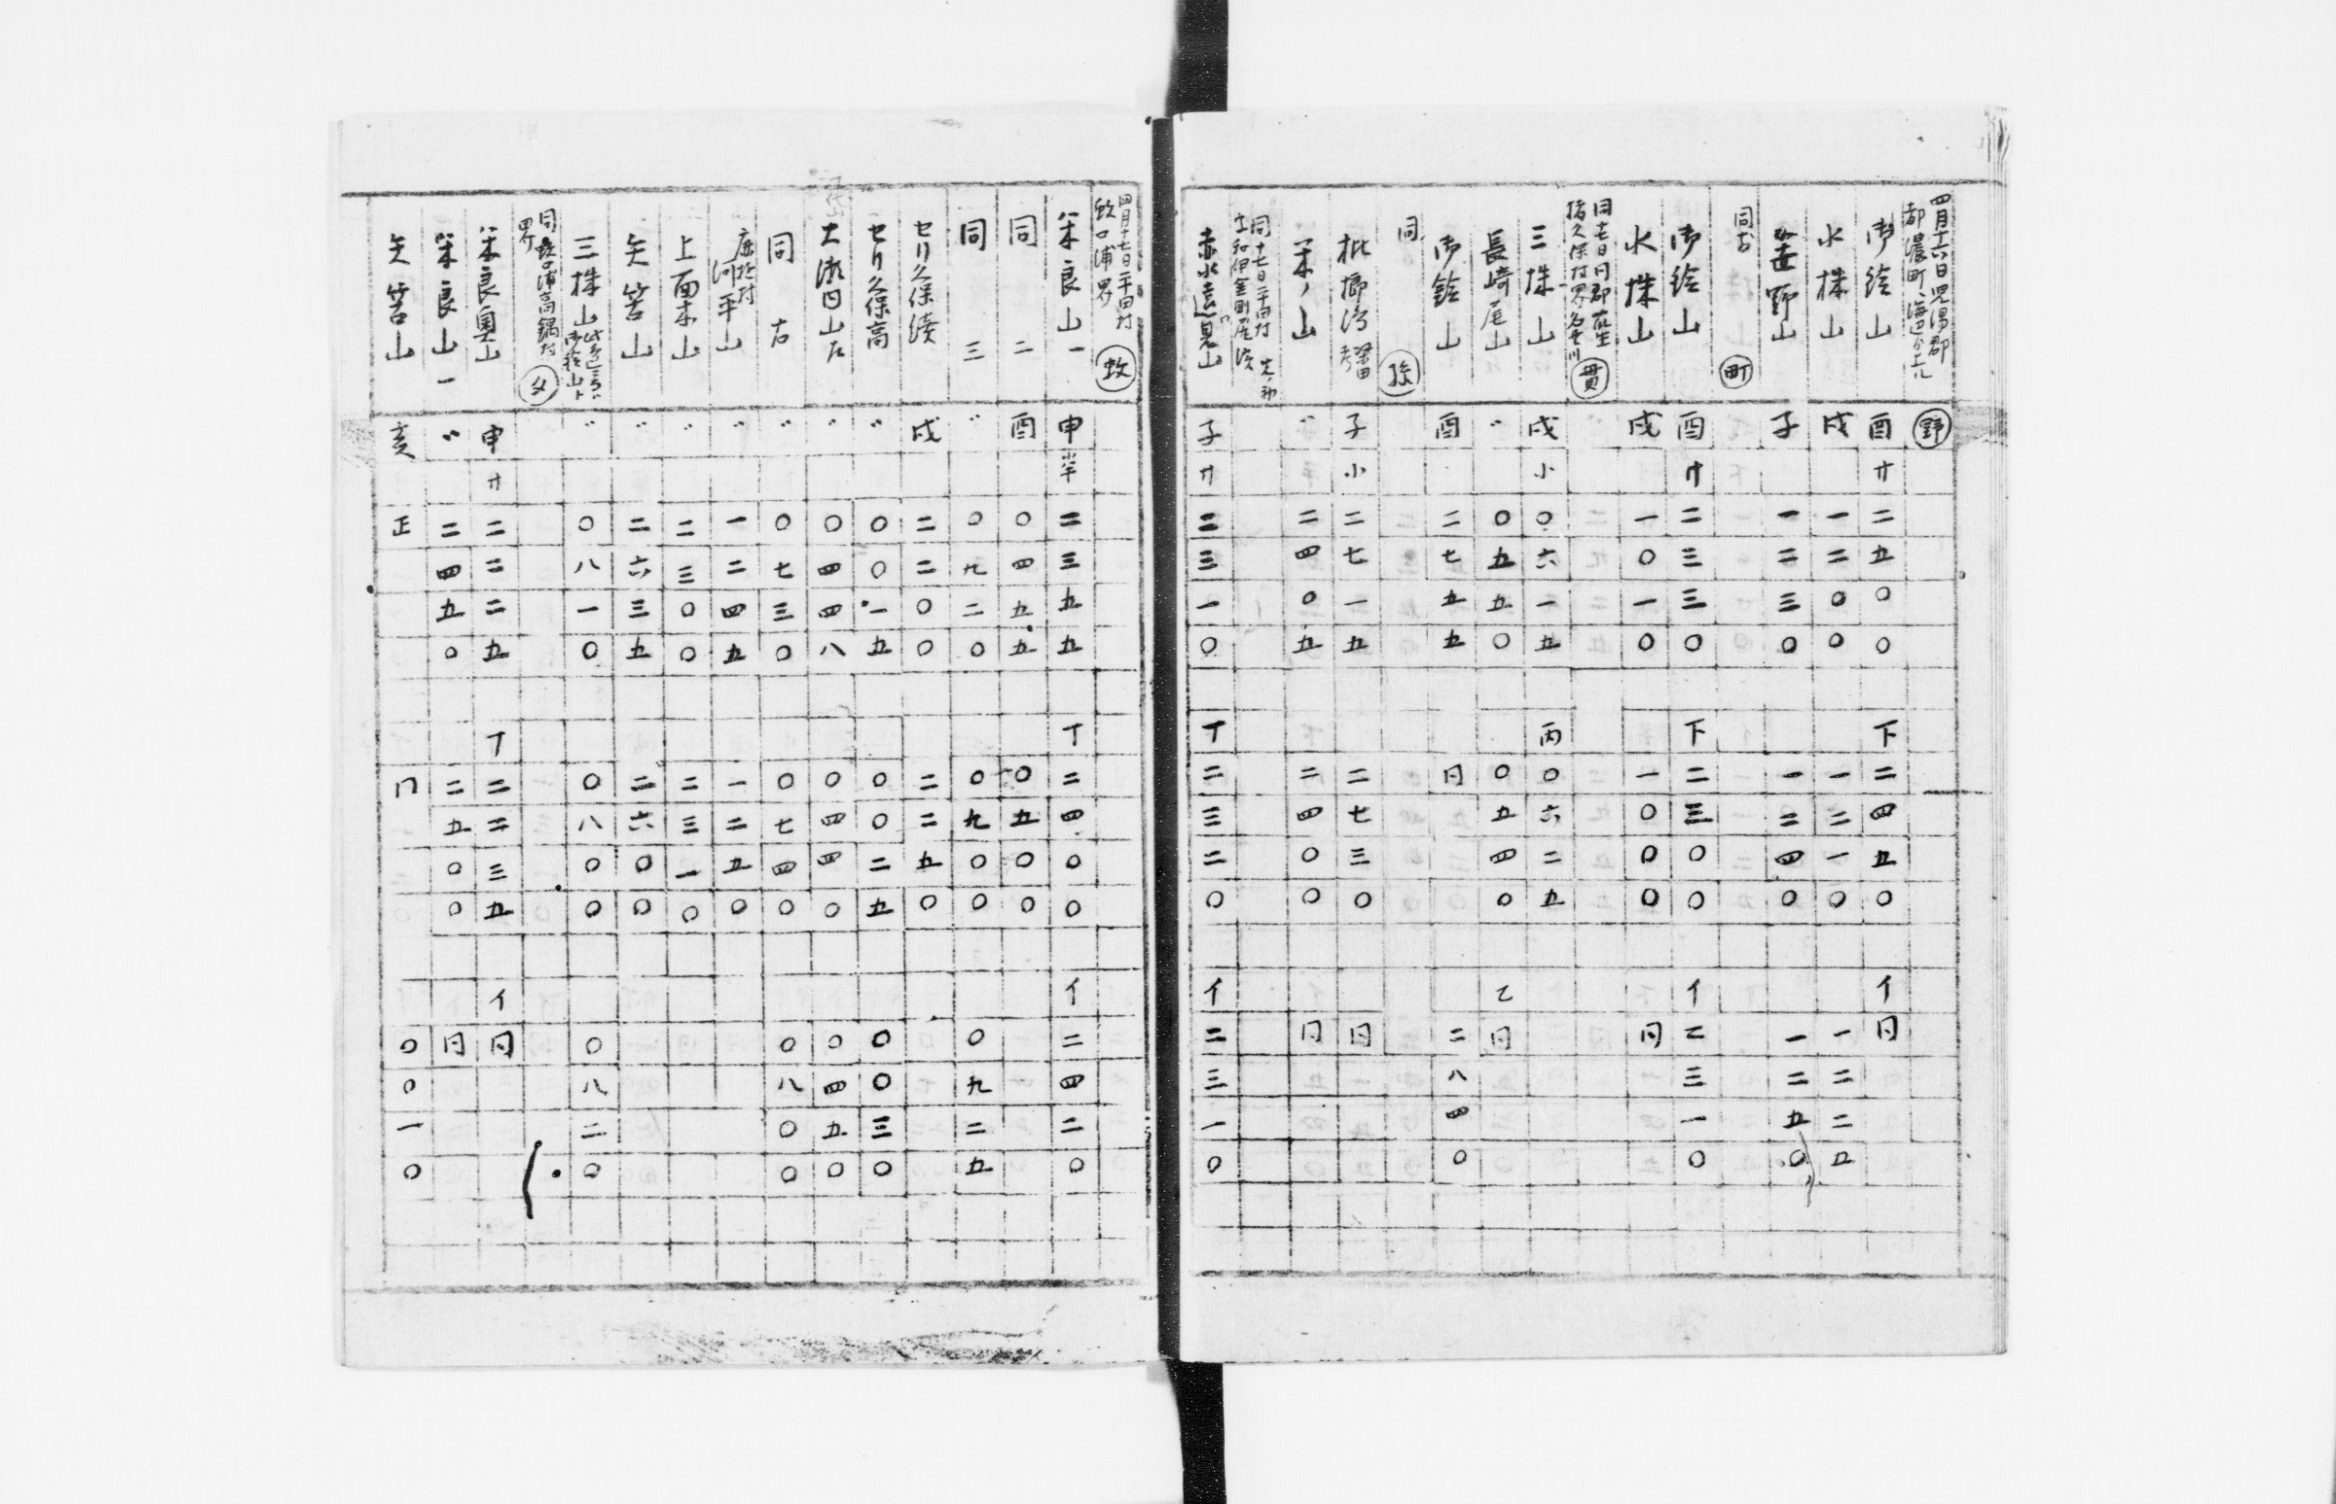 四月十六日児湯郡
都濃町、海辺分上ル
野
御絵山 酉 サ 二五〇〇 下 二四五〇 イ 同
水株山 戌 一二〇〇 一二一〇 一二二五
野山 子 一二三〇 一二四〇 一二五〇
同 町
御絵山 酉 サ 二三三〇 下 二三〇〇 イ 二三一〇
水株山 戌 一〇一〇 一〇〇〇 同
同七日同郡
久保村界名貫川
貫
三株山 戌 小 〇六一五 丙 〇六二五
長崎尾山 〃 〇五五〇 〇五四〇 乙 同
御鈴山 酉 二七五五 同 二八四〇
同
枇榔 子 小 二七一五 二七三〇 同
山 〃 二四〇五 二四〇〇 同
同十七日平田村
赤水遠見山 子 サ 二三一〇 丁 二三二〇 イ 二三一〇
四月十七日平田村
蚊口浦界
蚊
米良山一 申 半 二三五五 丁 二四〇〇 イ 二四二〇
同 二 酉 〇四五五 〇五〇〇
同 三 〃 〇九二〇 〇九〇〇 〇九二五
セリ久保 戌 二二〇〇 二二五〇
セリ久保高 〃 〇〇一五 〇〇二五 〇〇三〇
大瀬内山左 〃 〇四四八 〇四四〇 〇四五〇
同 右 〃 〇七三〇 〇七四〇 〇八〇〇
河平山 〃 一二四五 一二五〇
上面木山 〃 二三〇〇 二三一〇
矢筈山 〃 二六三五 二六〇〇
三株山 〃 〇八一〇 〇八〇〇 〇八二〇
同蚊口浦高鍋村
界
米良奥山 申 サ 二二二五 丁 二二三五 イ 同
米良山一 〃 二四五〇 二五〇〇 同
矢筈山 亥 正 〇〇一〇